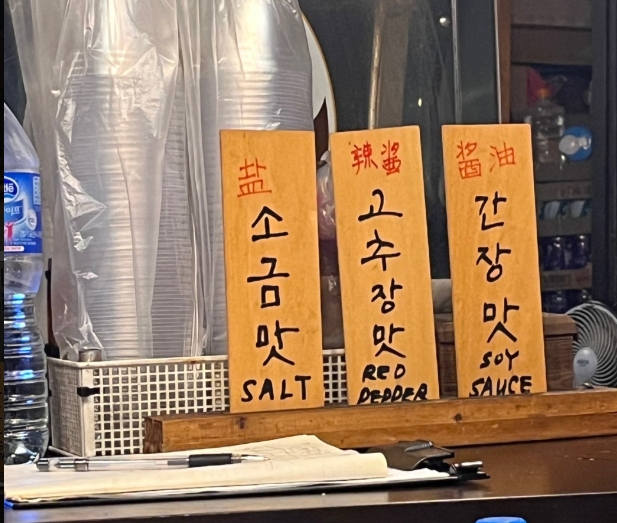 盐
소금맛
SALT
辣酱
고추장맛
RED
PEPPER
酱油
간장맛
SOY
SAUCE